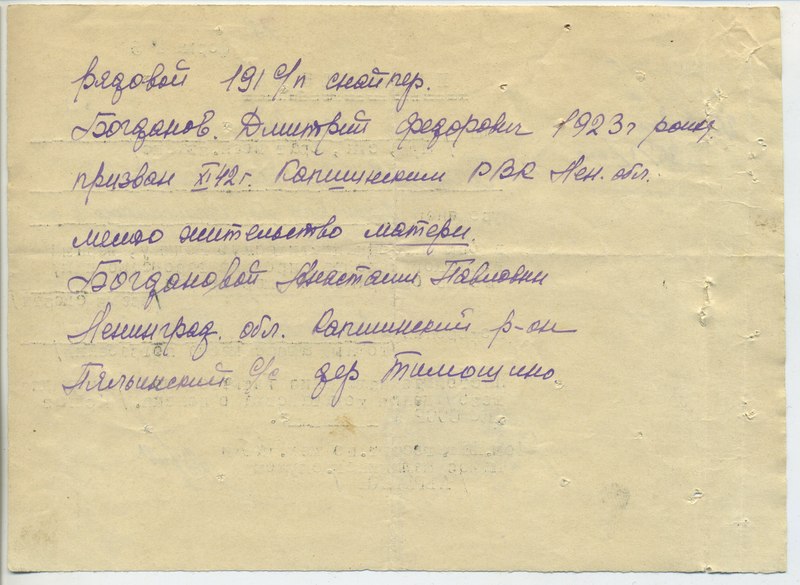 рядовой 191 с/п снайпер.
Богданов. Дмитрий Федорович 1923 г рожд.
призван XI 42 г. Капшинским РВК Лен. обл.
место жительство матери
Богдановой Анастасии Павловны
Ленинград. обл. Капшинский р-он
Пяльинский с/с дер Тимошино